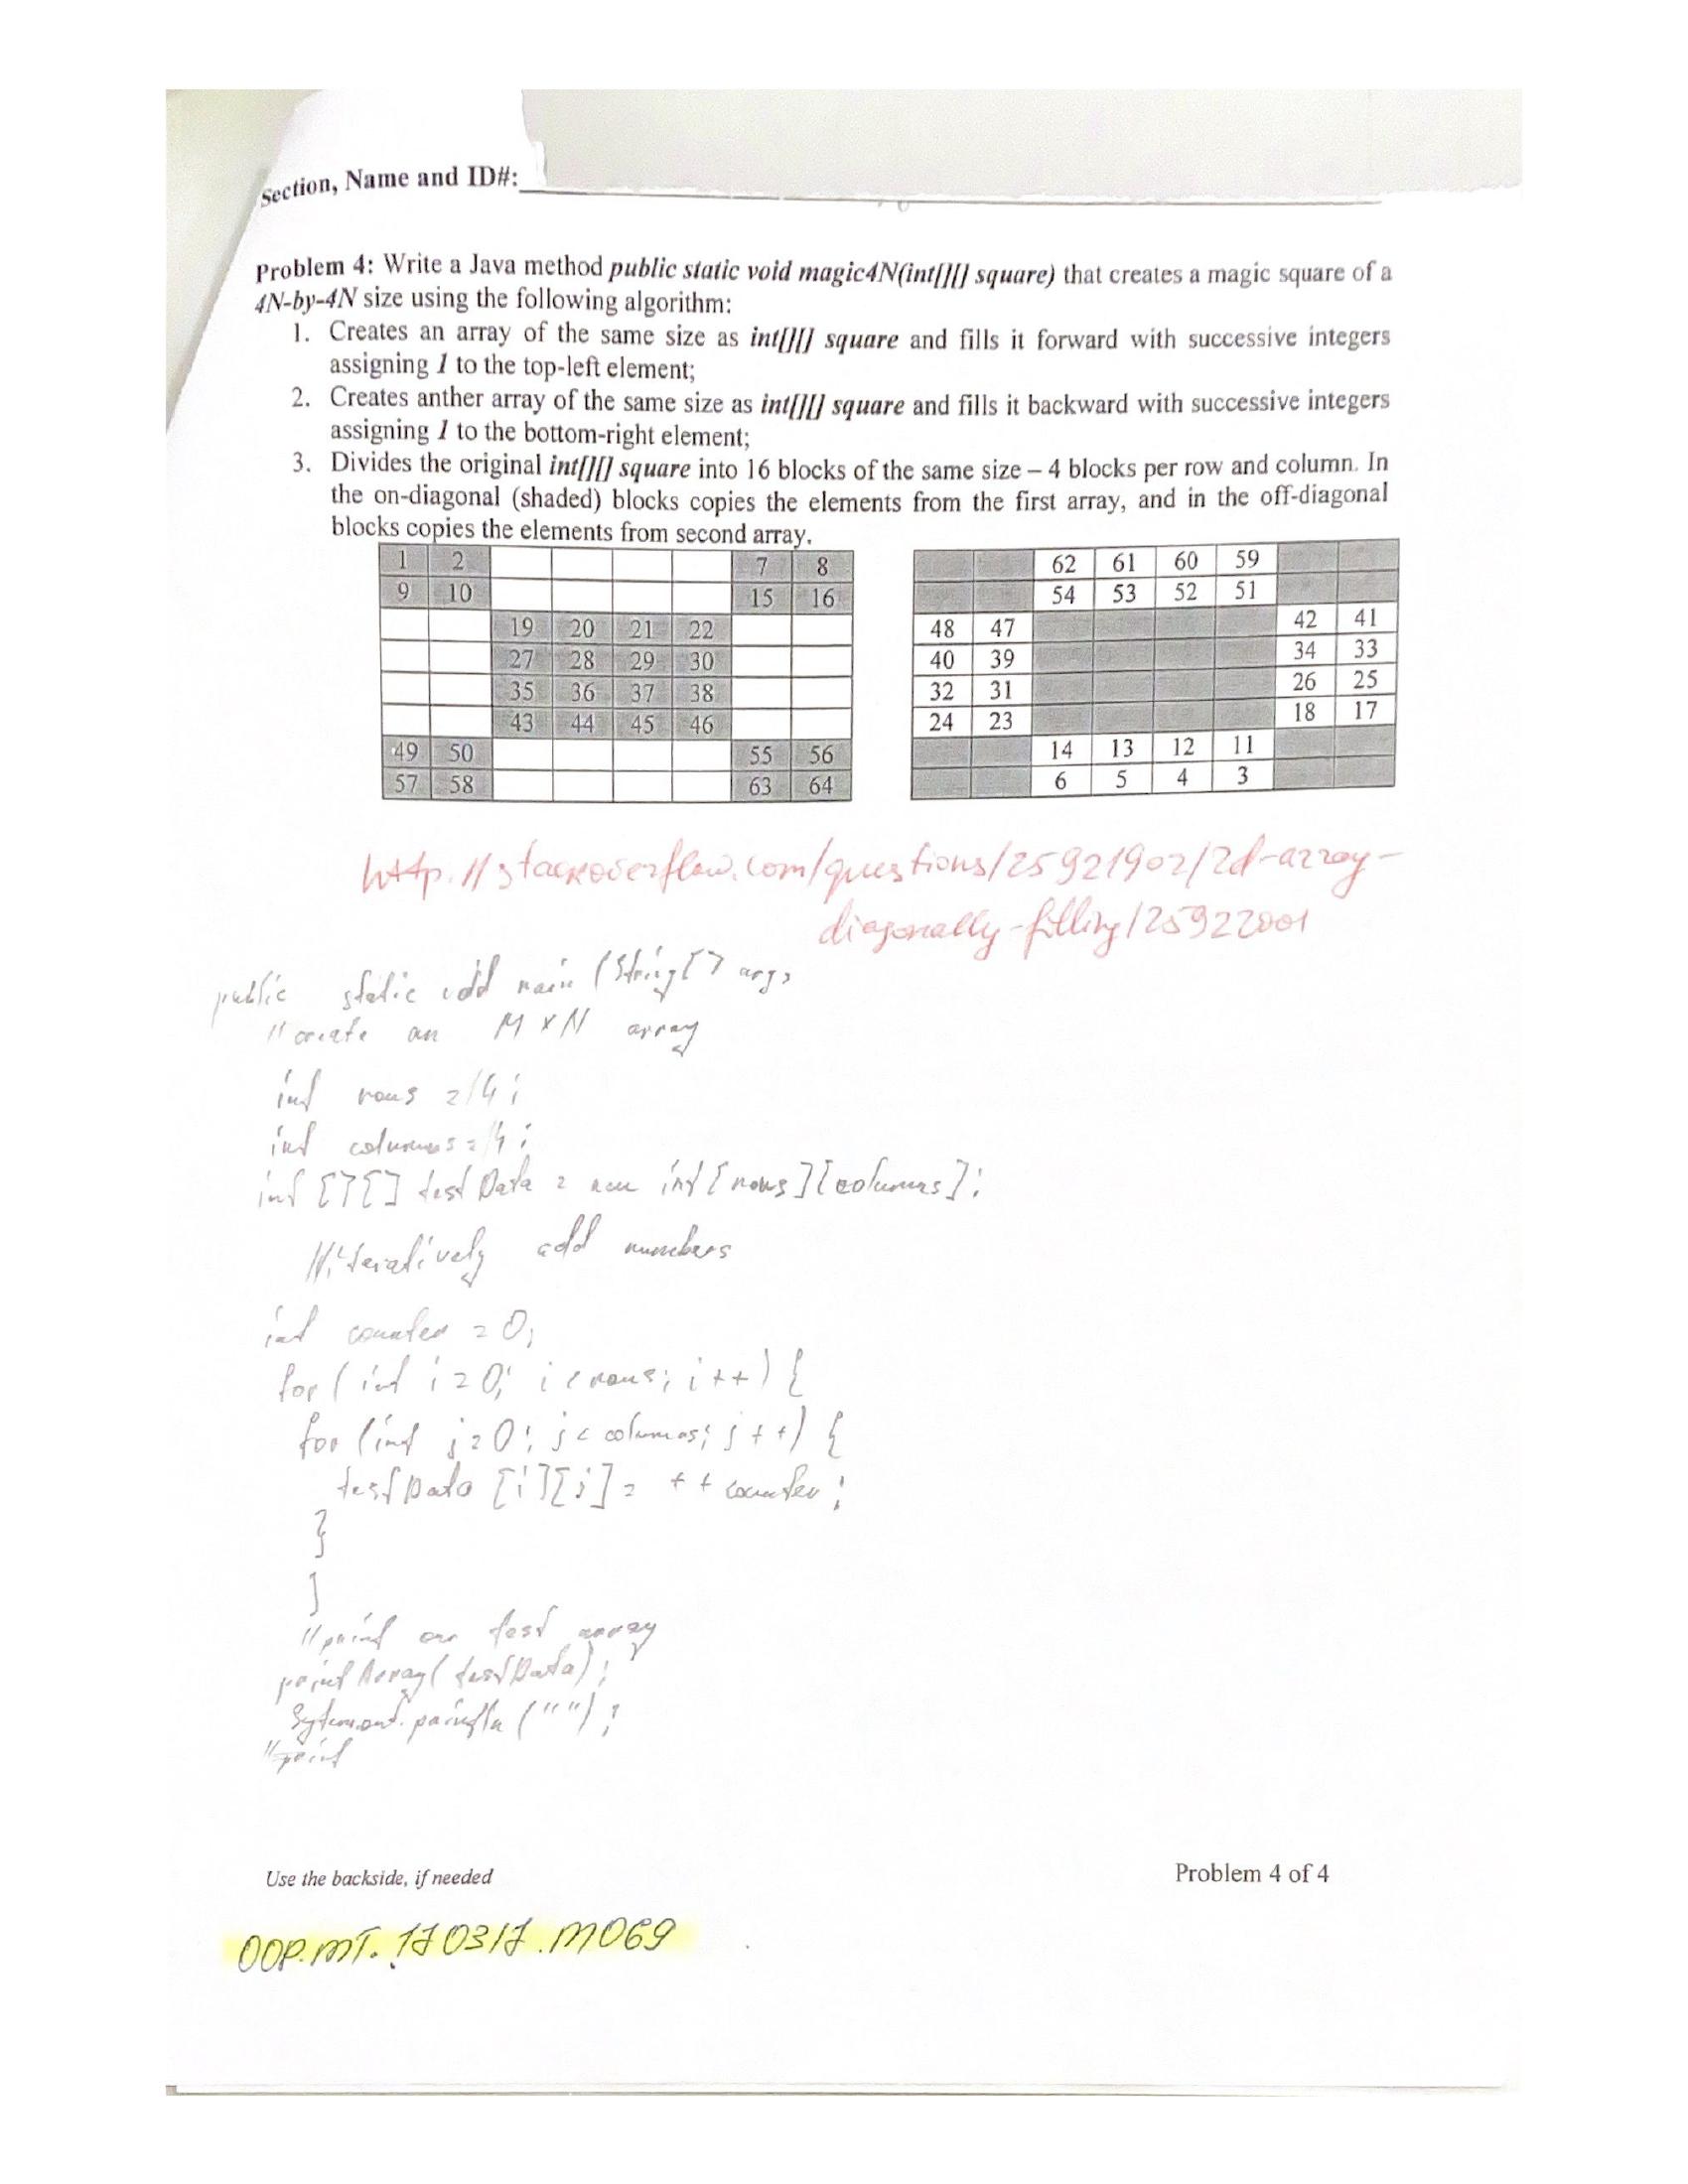 Section, Name and ID#:
Problem 4: Write a Java method public static void magic4N(int[][] square) that creates a magic square of a
4N-by-4N size using the following algorithm:
1. Creates an array of the same size as int[][] square and fills it forward with successive integers
assigning 1 to the top-left element;
2. Creates anther array of the same size as int[][] square and fills it backward with successive integers
assigning 1 to the bottom-right element;
3. Divides the original int[][] square into 16 blocks of the same size – 4 blocks per row and column. In
the on-diagonal (shaded) blocks copies the elements from the first array, and in the off-diagonal
blocks copies the elements from second array.
1 2 7 8
9 10 15 16
19 20 21 22
27 28 29 30
35 36 37 38
43 44 45 46
49 50 55 56
57 58 63 64
62 61 60 59
54 53 52 51
48 47 42 41
40 39 34 33
32 31 26 25
24 23 18 17
14 13 12 11
6 5 4 3
http://stackoverflow.com/questions/25921902/2d-array-
diagonally-filling/25922001
public static void main (String[] args
// create an M x N array
int rows = 4;
int columns = 4;
int [][] testData = new int [rows][columns];
// iteratively add numbers
int counter = 0;
for (int i = 0; i < rows; i++) {
for (int j = 0; j < columns; j++) {
testData [i][j] = ++counter;
}
}
// print our test array
printArray( testData);
Sytem.out.println ("");
// print
Use the backside, if needed
Problem 4 of 4
OOP.MT.170317.M069